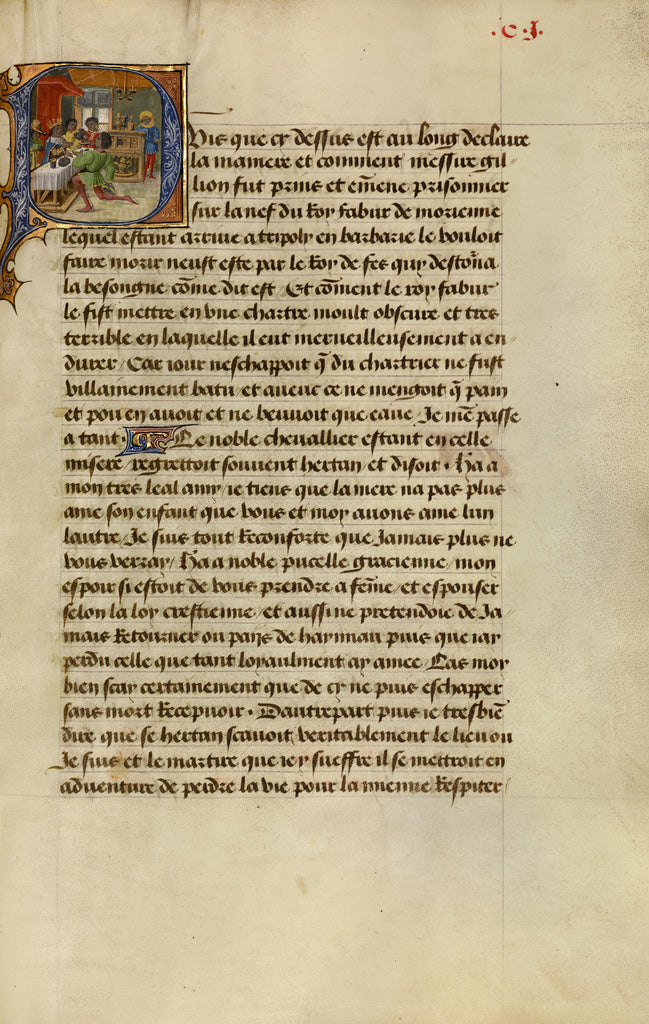 .C.J.
Puis que cy dessus est au long declaire
la maniere et comment messire gil
lion fut prins et em̄ene prisonnier
sur la nef du Roy fabur de morienne
lequel estant arriue a tripoly en barbarie le vouloit
faire morir neust este par le Roy de fes quy destourna
la besongne com̄e dit est / Et com̄ent le roy fabur
le fist mettre en vne chartre moult obscure et tres
terrible en laquelle il eut merueilleusement a en
durer / Car iour neschappoit q̄ du chartrier ne fust
villainement batu / et auec ce ne mengoit q̄ pain
et pou en auoit et ne beuuoit que eaue / Je men passe
a tant. Le noble cheuallier estant en celle
misere / regrettoit souuent hertan et disoit. Ha a
mon tres leal amy ie tiens que la mere na pas plus
ame son enfant que vous et moy auons ame lun
lautre / Je suis tout Reconforte que Jamais plus ne
vous verray / Ha a noble pucelle gracienne mon
espoir si estoit de vous prendre a fem̄e / et espouser
selon la loy crestienne / et aussi ne pretendoie de Ja
mais Retourner ou pays de haynnau puis que iay
perdu celle que tant loyaulment ay amee / Las moy
bien scay certainement que de cy ne puis eschapper
sans mort Recepuoir. Dautrepart puis ie tresbiē
dire que se hertan scauoit veritablement le lieu ou
Je suis et le martire que iey sueffre il se mettroit en
aduenture de perdre la vie pour la mienne Respiter /